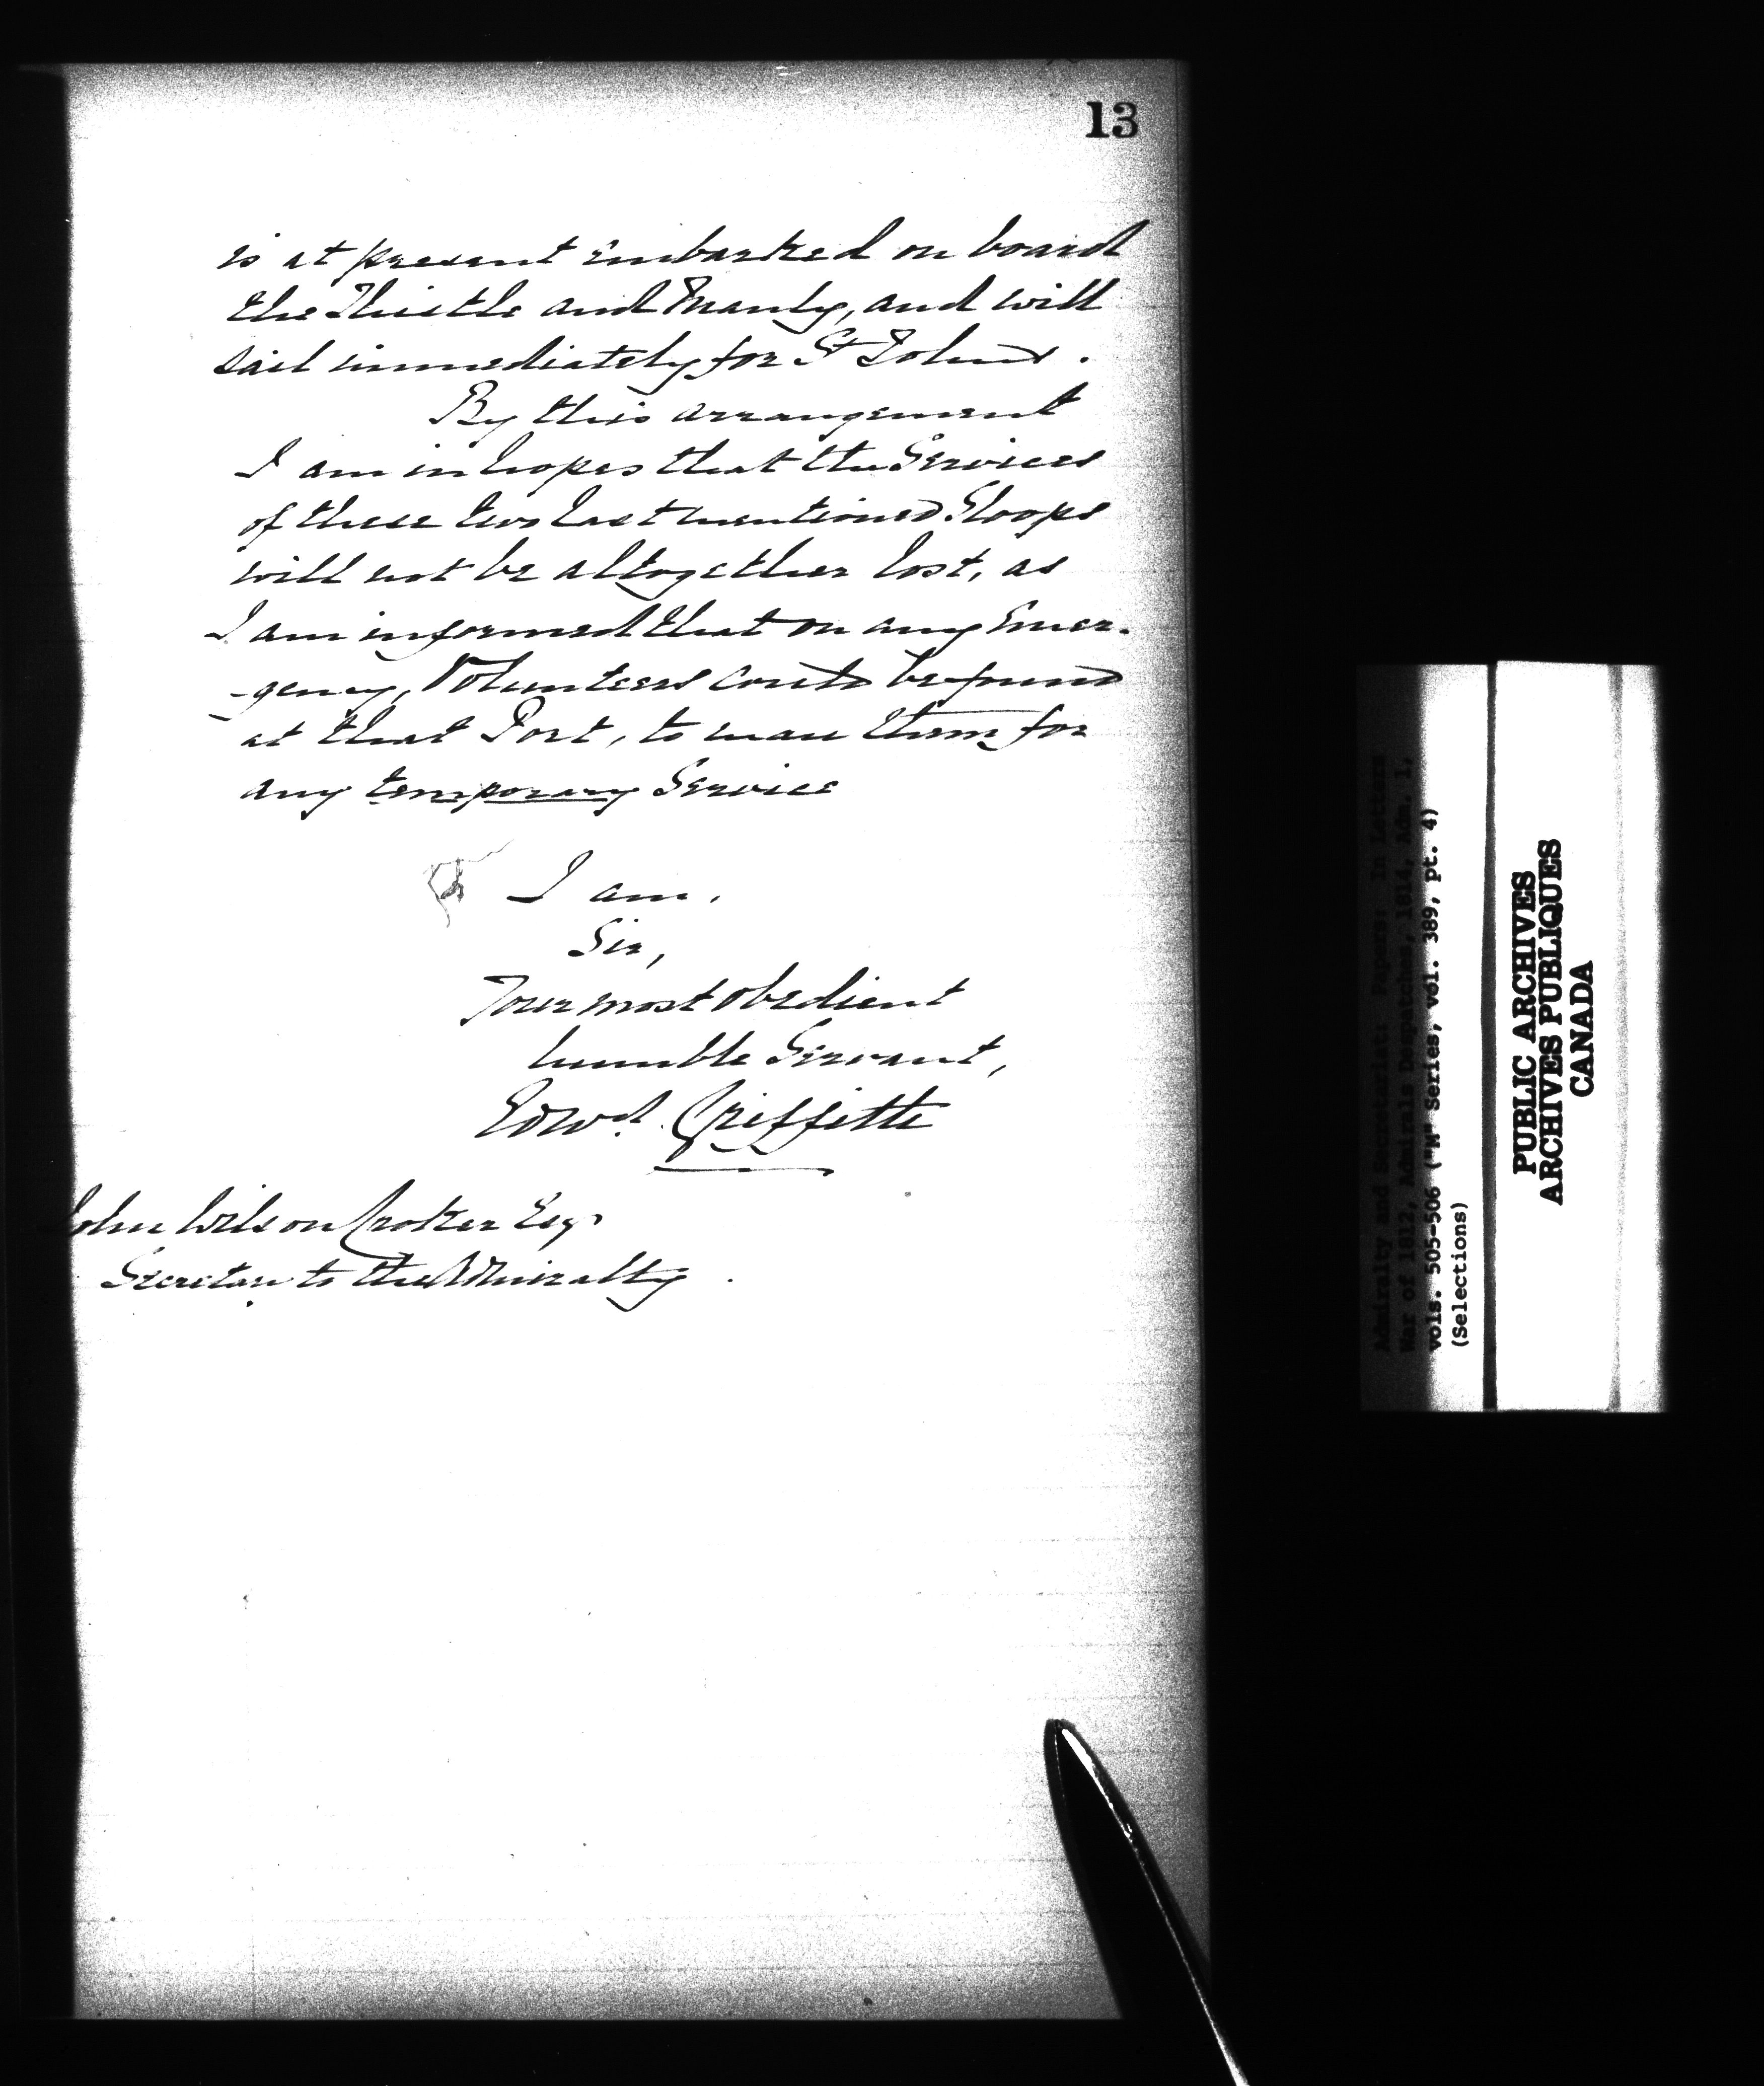 13
is at present embarked on board
the Thistle and Manly, and will
sail immediately for St Johns.
By this arrangement
I am in hopes that the Services
of these two last mentioned Sloops
will not be altogether lost, as
I am informed that on any Emer-
-gency, Volunteers could be found
at that Port, to man them for
any temporary Service
I am,
Sir,
Your most obedient
humble Servant,
Edwd. Griffith
John Wilson Croker Esqr
Secretary to the Admiralty.
Admiralty and Secretariat: Papers: In Letters
War of 1812, Admirals Despatches, 1814, Adm. 1,
vols. 505-506 ("M" Series, vol. 389, pt. 4)
(Selections)
PUBLIC ARCHIVES
ARCHIVES PUBLIQUES
CANADA